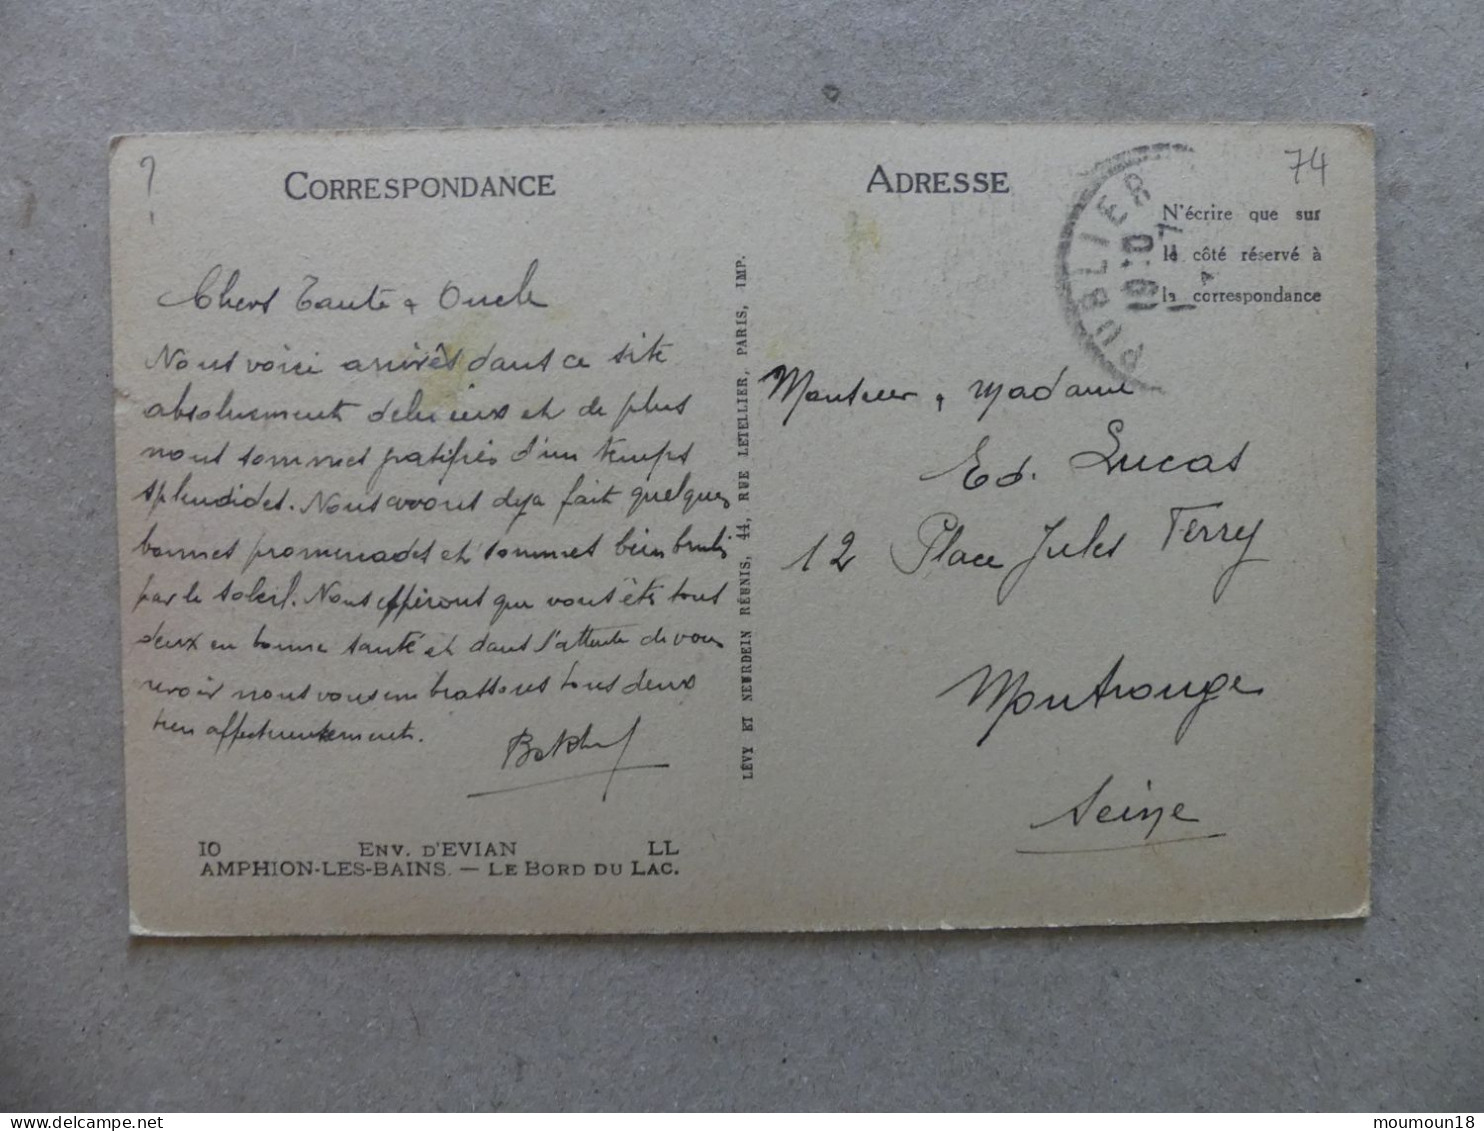 ?
CORRESPONDANCE
Chers Tante & Oncle
Nous voici arrivés dans ce site
absolument délicieux et de plus
nous sommes gratifiés d'un temps
splendides. Nous avons deja fait quelques
bonnes promenades et sommes bien brulés
par le soleil. Nous espérons que vous êtes tous
deux en bonne santé et dans l'attente de vous
revoir nous vous embrassons tous deux
tres affectueusement.
10 ENV. D'EVIAN LL
AMPHION-LES-BAINS. — LE BORD DU LAC.
LÉVY ET NEURDEIN RÉUNIS, 44, RUE LETELLIER, PARIS, IMP.
ADRESSE
74
N'écrire que sur
le côté réservé à
la correspondance
PUBLIER
Monsieur & Madame
Ed. Lucas
12 Place Jules Ferry
Montrouge
Seine
moumoun18